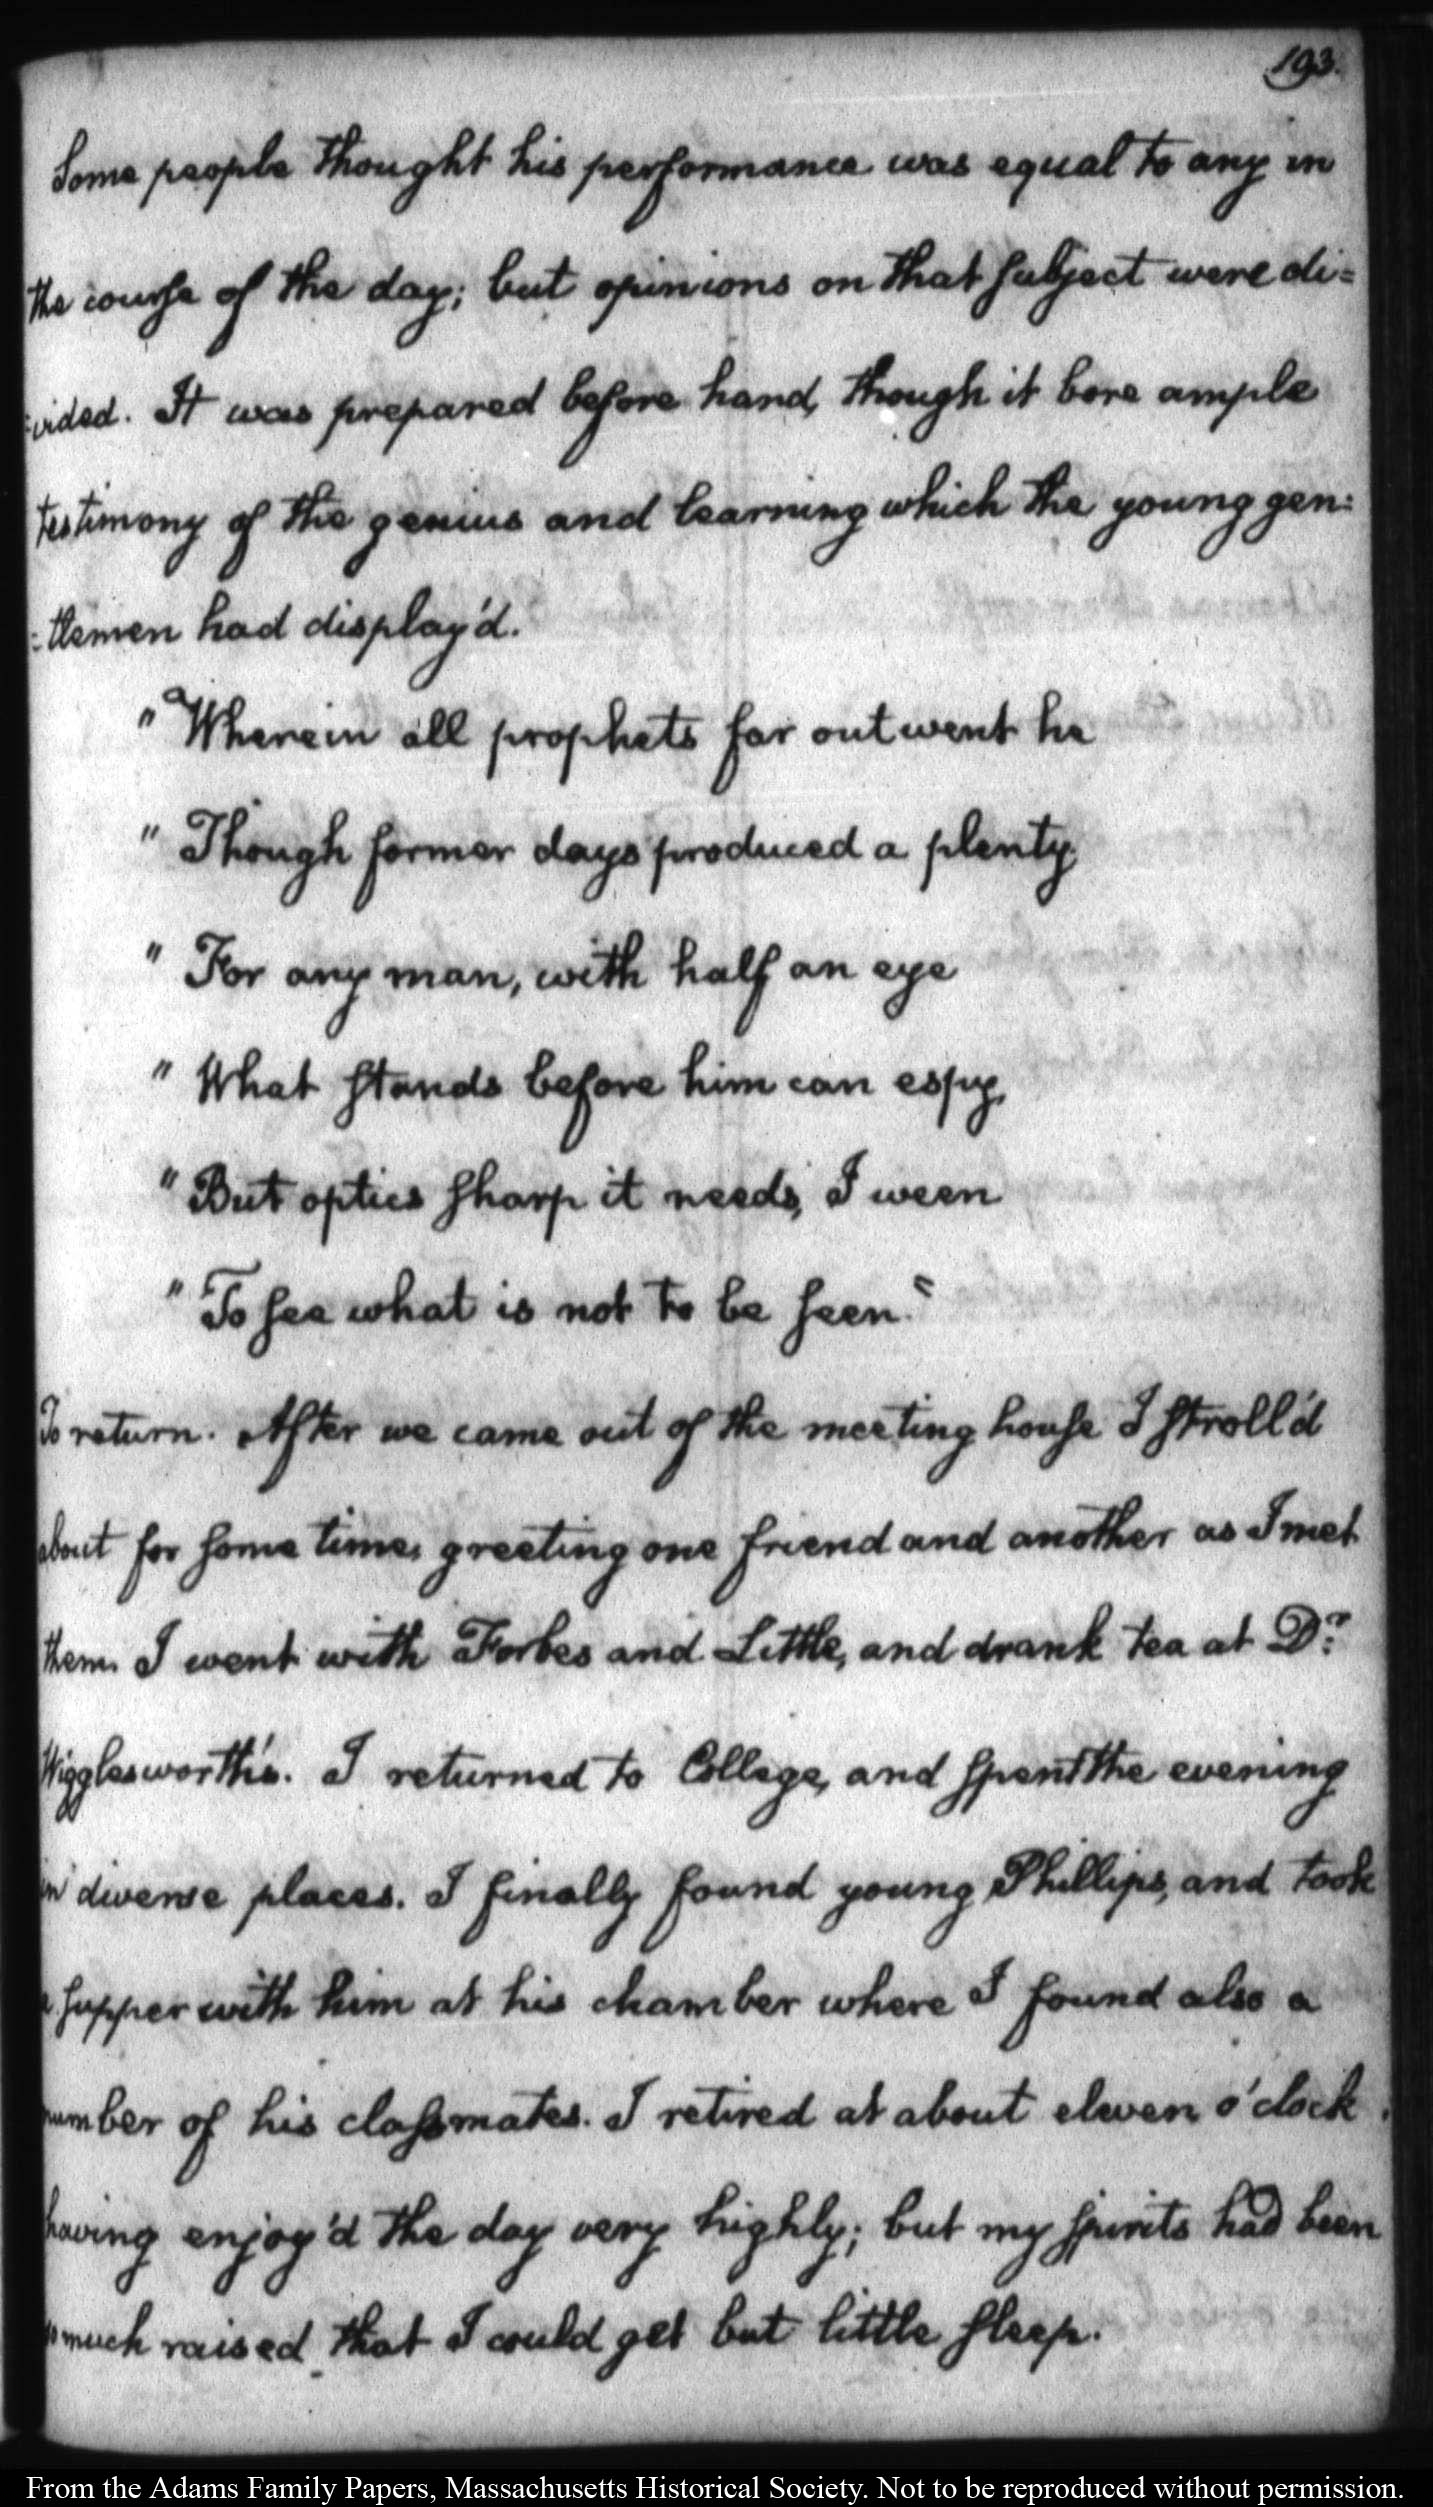 193.
Some people thought his performance was equal to any in
the course of the day; but opinions on that subject were di=
=vided. It was prepared before hand, though it bore ample
testimony of the genius and learning which the young gen=
=tlemen had display'd.
" Wherein all prophets far outwent he
" Though former days produced a plenty,
" For any man, with half an eye
" What stands before him can espy,
" But optics sharp it needs, I ween
" To see what is not to be seen."
To return. After we came out of the meeting house I stroll'd
about for some time, greeting one friend and another as I met
them. I went with Forbes and Little, and drank tea at Dr.
Wigglesworth's. I returned to College, and spent the evening
in diverse places. I finally found young Phillips, and took
a supper with him at his chamber where I found also a
number of his classmates. I retired at about eleven o'clock.
having enjoy'd the day very highly; but my spirits had been
so much raised that I could get but little sleep.
From the Adams Family Papers, Massachusetts Historical Society. Not to be reproduced without permission.